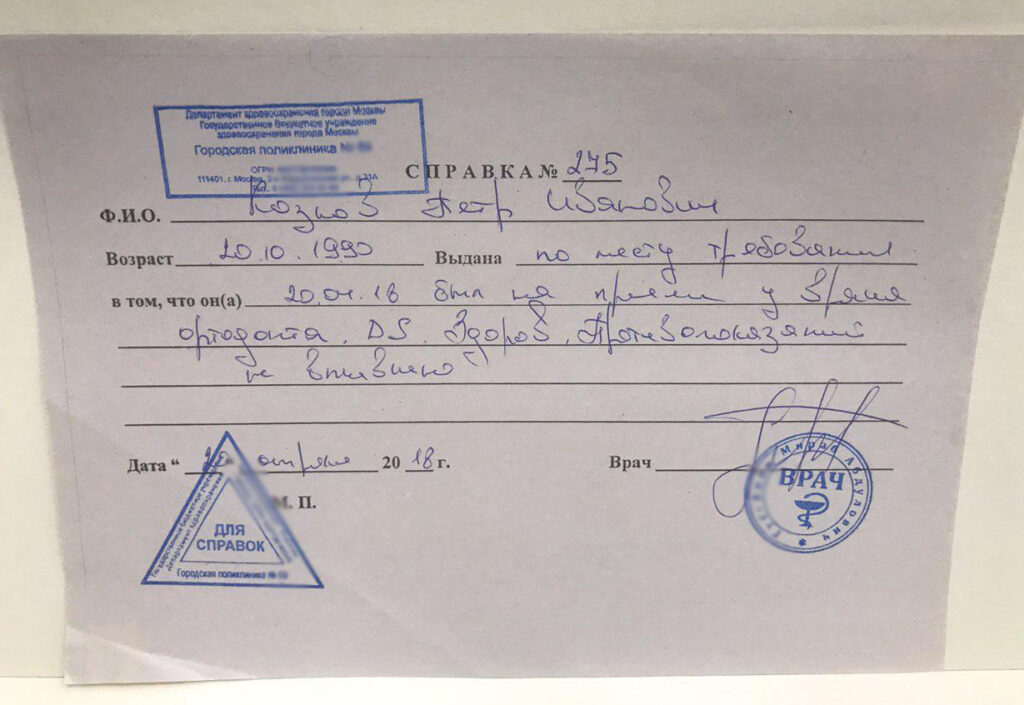 Департамент здравоохранения города Москвы
Государственное бюджетное учреждение
здравоохранения города Москвы
Городская поликлиника №
ОГРН
111401, г. Москва,
СПРАВКА № 275
Ф.И.О. Петр Иванович
Возраст 20.10.1990 Выдана по месту требования
в том, что он(а) 20.04.18 был на приеме у врача
ортодонта. DS. Здоров. Противопоказаний
не
Дата “ апреля 2018 г.
Врач
М. П.
Государственное бюджетное учреждение
Департамент здравоохранения
ДЛЯ
СПРАВОК
Городская поликлиника №
Мирас Абдулович
ВРАЧ